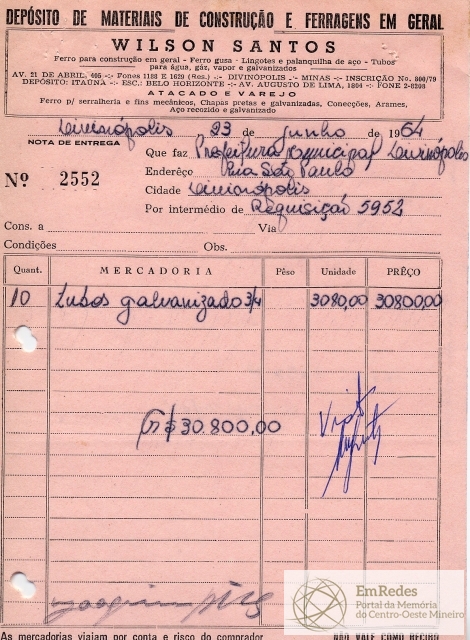 DEPÓSITO DE MATERIAIS DE CONSTRUÇÃO E FERRAGENS EM GERAL
WILSON SANTOS
Ferro para construção em geral - Ferro gusa - Lingotes e palanquilha de aço - Tubos
para água, gáz, vapor e galvanizados
AV. 21 DE ABRIL, 406 -:- Fones 1188 E 1629 (Res.) -:- DIVINÓPOLIS -:- MINAS -:- INSCRIÇÃO No. 800/79
DEPÓSITO: ITAÚNA -:- ESC.: BELO HORIZONTE -:- AV. AUGUSTO DE LIMA, 1806 -:- FONE 2-8208
ATACADO E VAREJO
Ferro p/ serralheria e fins mecânicos, Chapas pretas e galvanizadas, Conecções, Arames,
Aço recozido e galvanizado
Divinópolis 23 de junho de 1964
NOTA DE ENTREGA
Que faz Prefeitura Municipal Divinópolis
Nº 2552
Endereço Rua São Paulo
Cidade Divinópolis
Por intermédio de Requisição 5952
Cons. a Via
Condições Obs.
Quant. MERCADORIA Pêso Unidade PRÊÇO
10 Tubos galvanizado 3/4 3080,00 30800,00
Cr$ 30.800,00
Visto
EmRedes
Portal da Memória
do Centro-Oeste Mineiro
As mercadorias viajam por conta e risco do comprador NÃO VALE COMO RECIBO